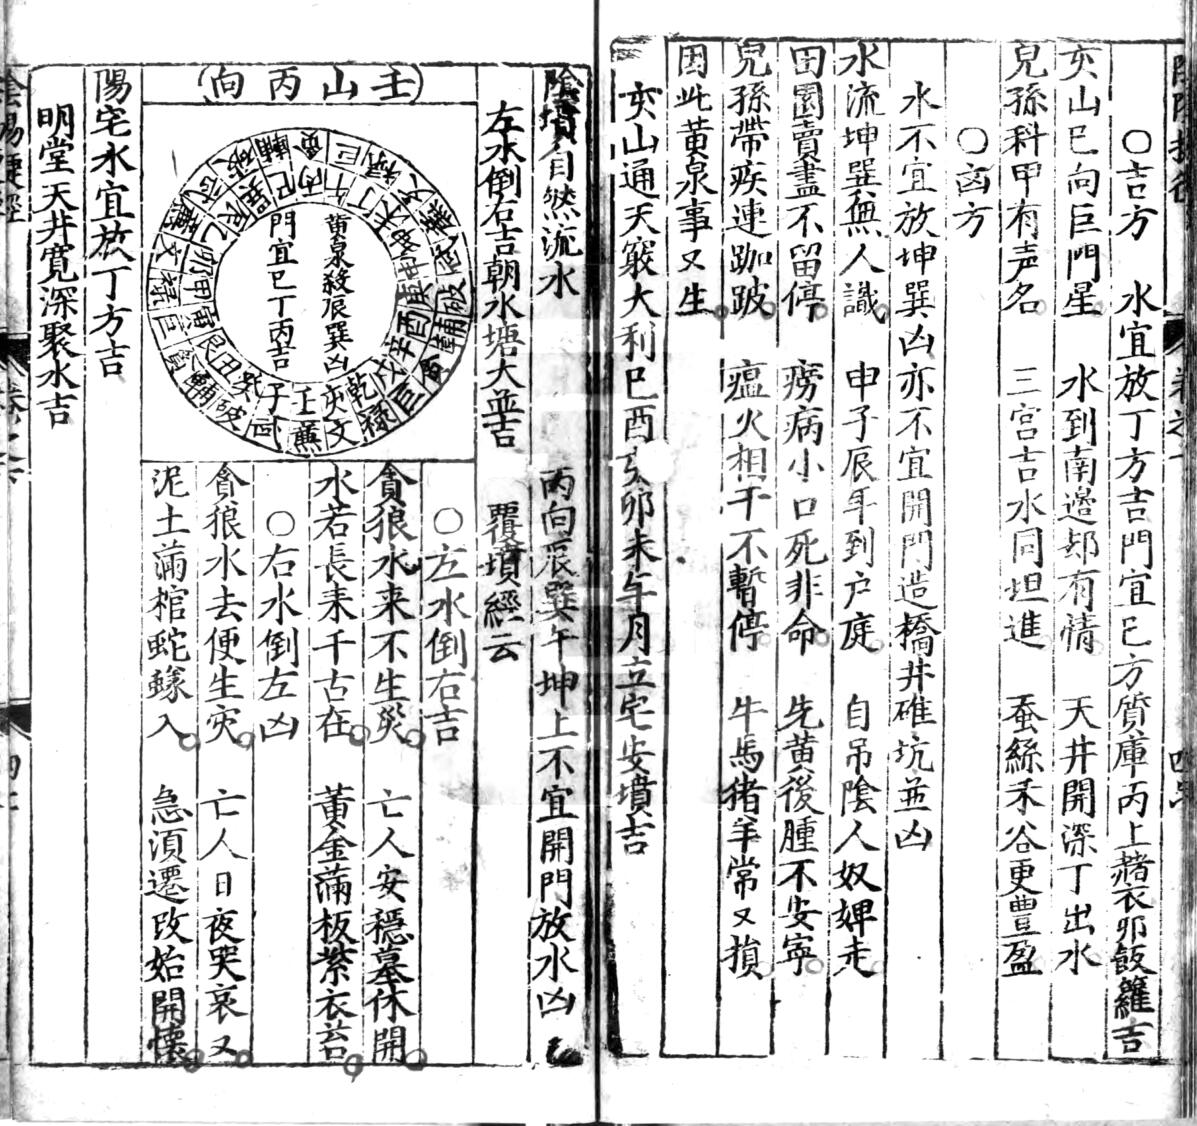 ○吉方　水宜放丁方吉門宜巳方質庫丙上赭衣卯飯籮吉
亥山巳向巨門星　水到南邊却有情　天井開深丁出水
兒孫科甲有声名　三宮吉水同坦進　蚕絲禾谷更豊盈
○凶方
水不宜放坤巽凶亦不宜開門造橋井碓坑並凶
水流坤巽無人識　申子辰年到户庭　自吊陰人奴婢走
田園賣盡不留停　癆病小口死非命　先黄後腫不安寧
兒孫帶疾連跏跛　瘟火相干不暫停　牛馬猪羊常又損
因此黄泉事又生
亥山通天竅大利巳酉亥卯未午月立宅安墳吉
陰墳自然流水　丙向辰巽午坤上不宜開門放水凶
左水倒右吉朝水塘大並吉　覆墳經云
○左水倒右吉
貪狼水来不生災　亡人安穩墓休開
水若長来千古在　黄金滿板紫衣苔
○右水倒左凶
貪狼水去便生灾　亡人日夜哭哀又
泥土滿棺蛇蟻入　急須遷改始開懷
(壬山丙向)
黄泉殺辰巽凶
門宜巳丁丙吉
陽宅水宜放丁方吉
明堂天井寬深聚水吉